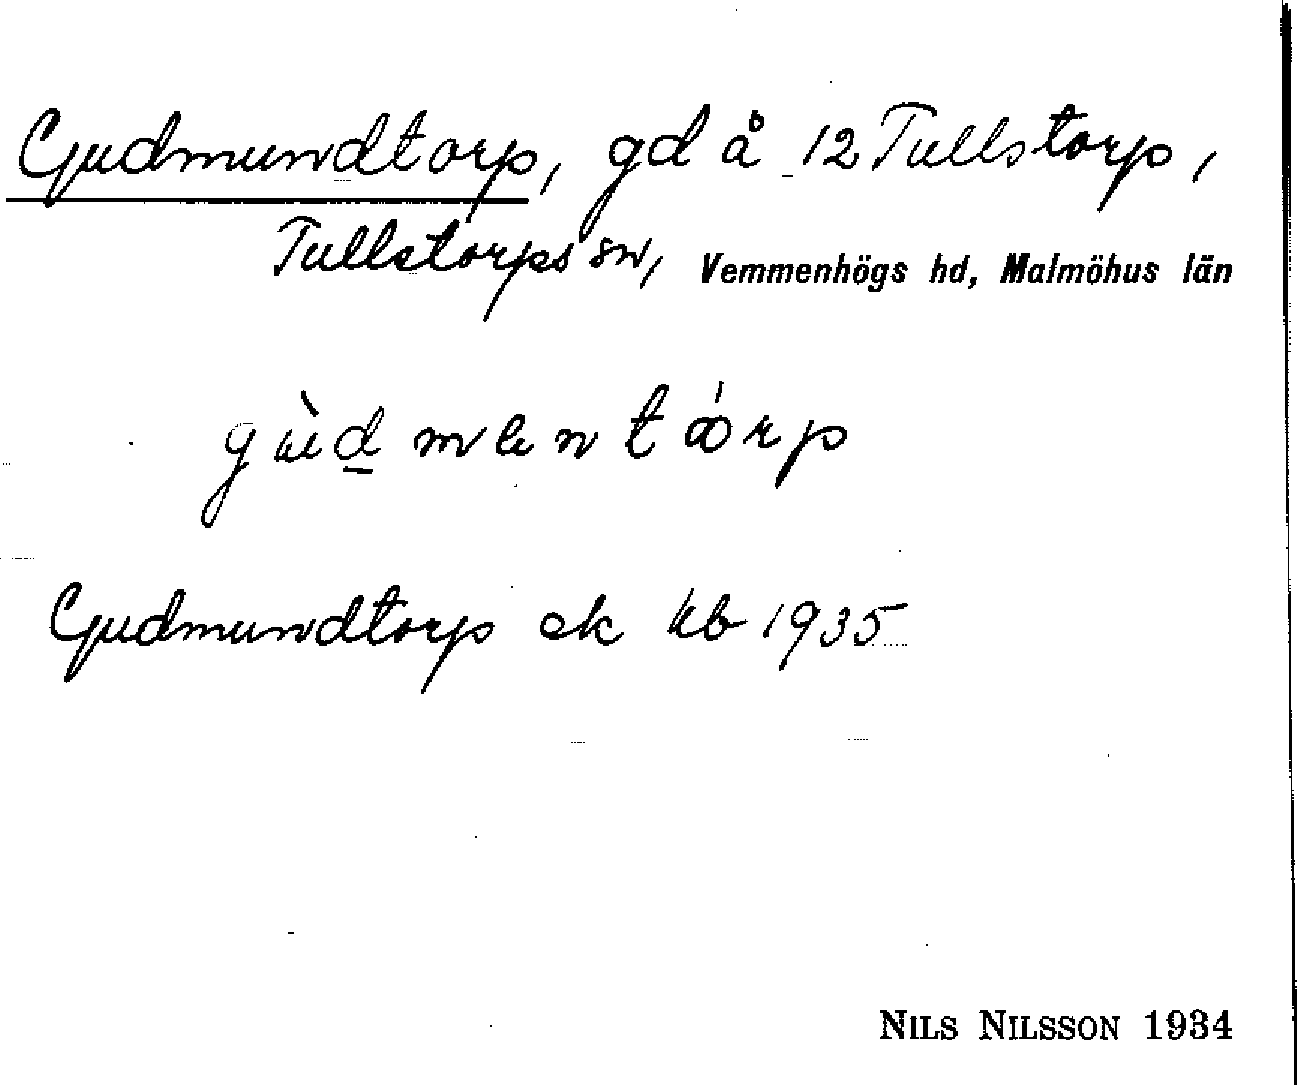 Gudmundtorp, gd å 12 Tullstorp,
Tullstorps sn, Vemmenhögs hd, Malmöhus län
Gudmundtorp ek kb 1935
NILS NILSSON 1934